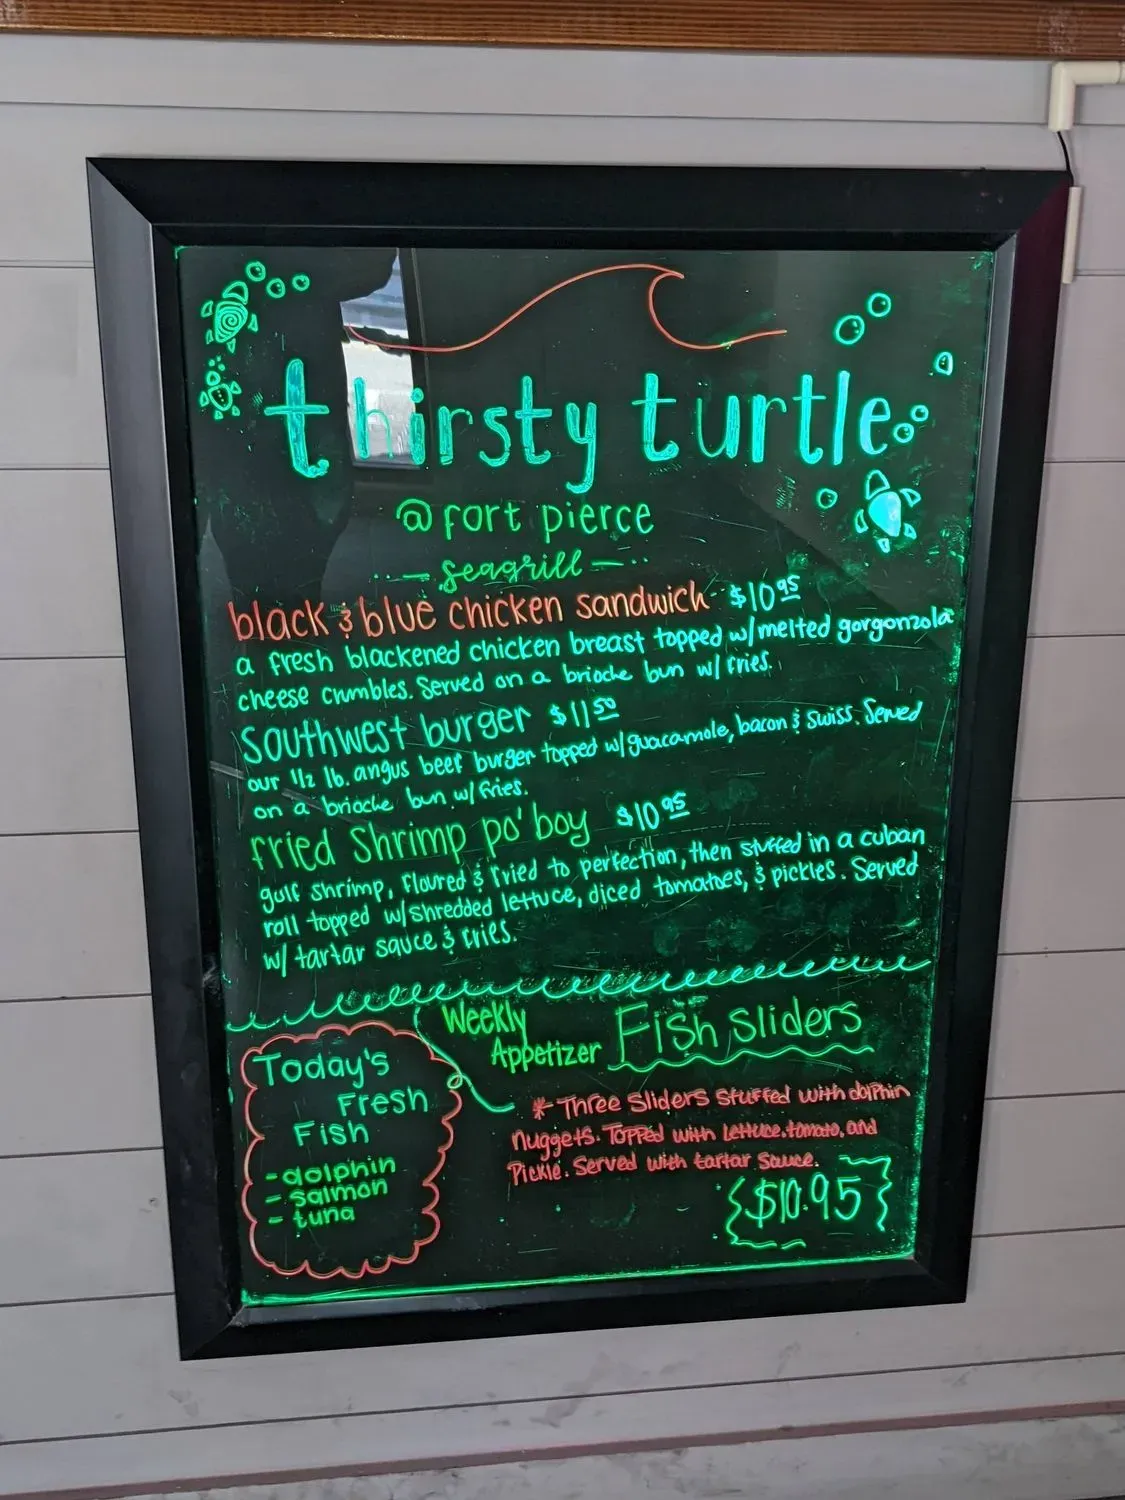 thirsty turtle
@ fort pierce
seagrill
black & blue chicken sandwich $10.95
a fresh blackened chicken breast topped w/melted gorgonzola
cheese crumbles. Served on a brioche bun w/ fries.
Southwest burger $11.50
our 1/2 lb. angus beef burger topped w/guacamole, bacon & swiss. Served
on a brioche bun w/ fries.
fried Shrimp po' boy $10.95
gulf shrimp, floured & fried to perfection, then stuffed in a cuban
roll topped w/shredded lettuce, diced tomatoes, & pickles. Served
w/ tartar sauce & fries.
Weekly
Appetizer
Fish Sliders
* Three Sliders stuffed with dolphin
nuggets. Topped with lettuce, tomato, and
Pickle. Served with tartar Sauce.
$10.95
Today's
Fresh
Fish
- dolphin
- salmon
- tuna